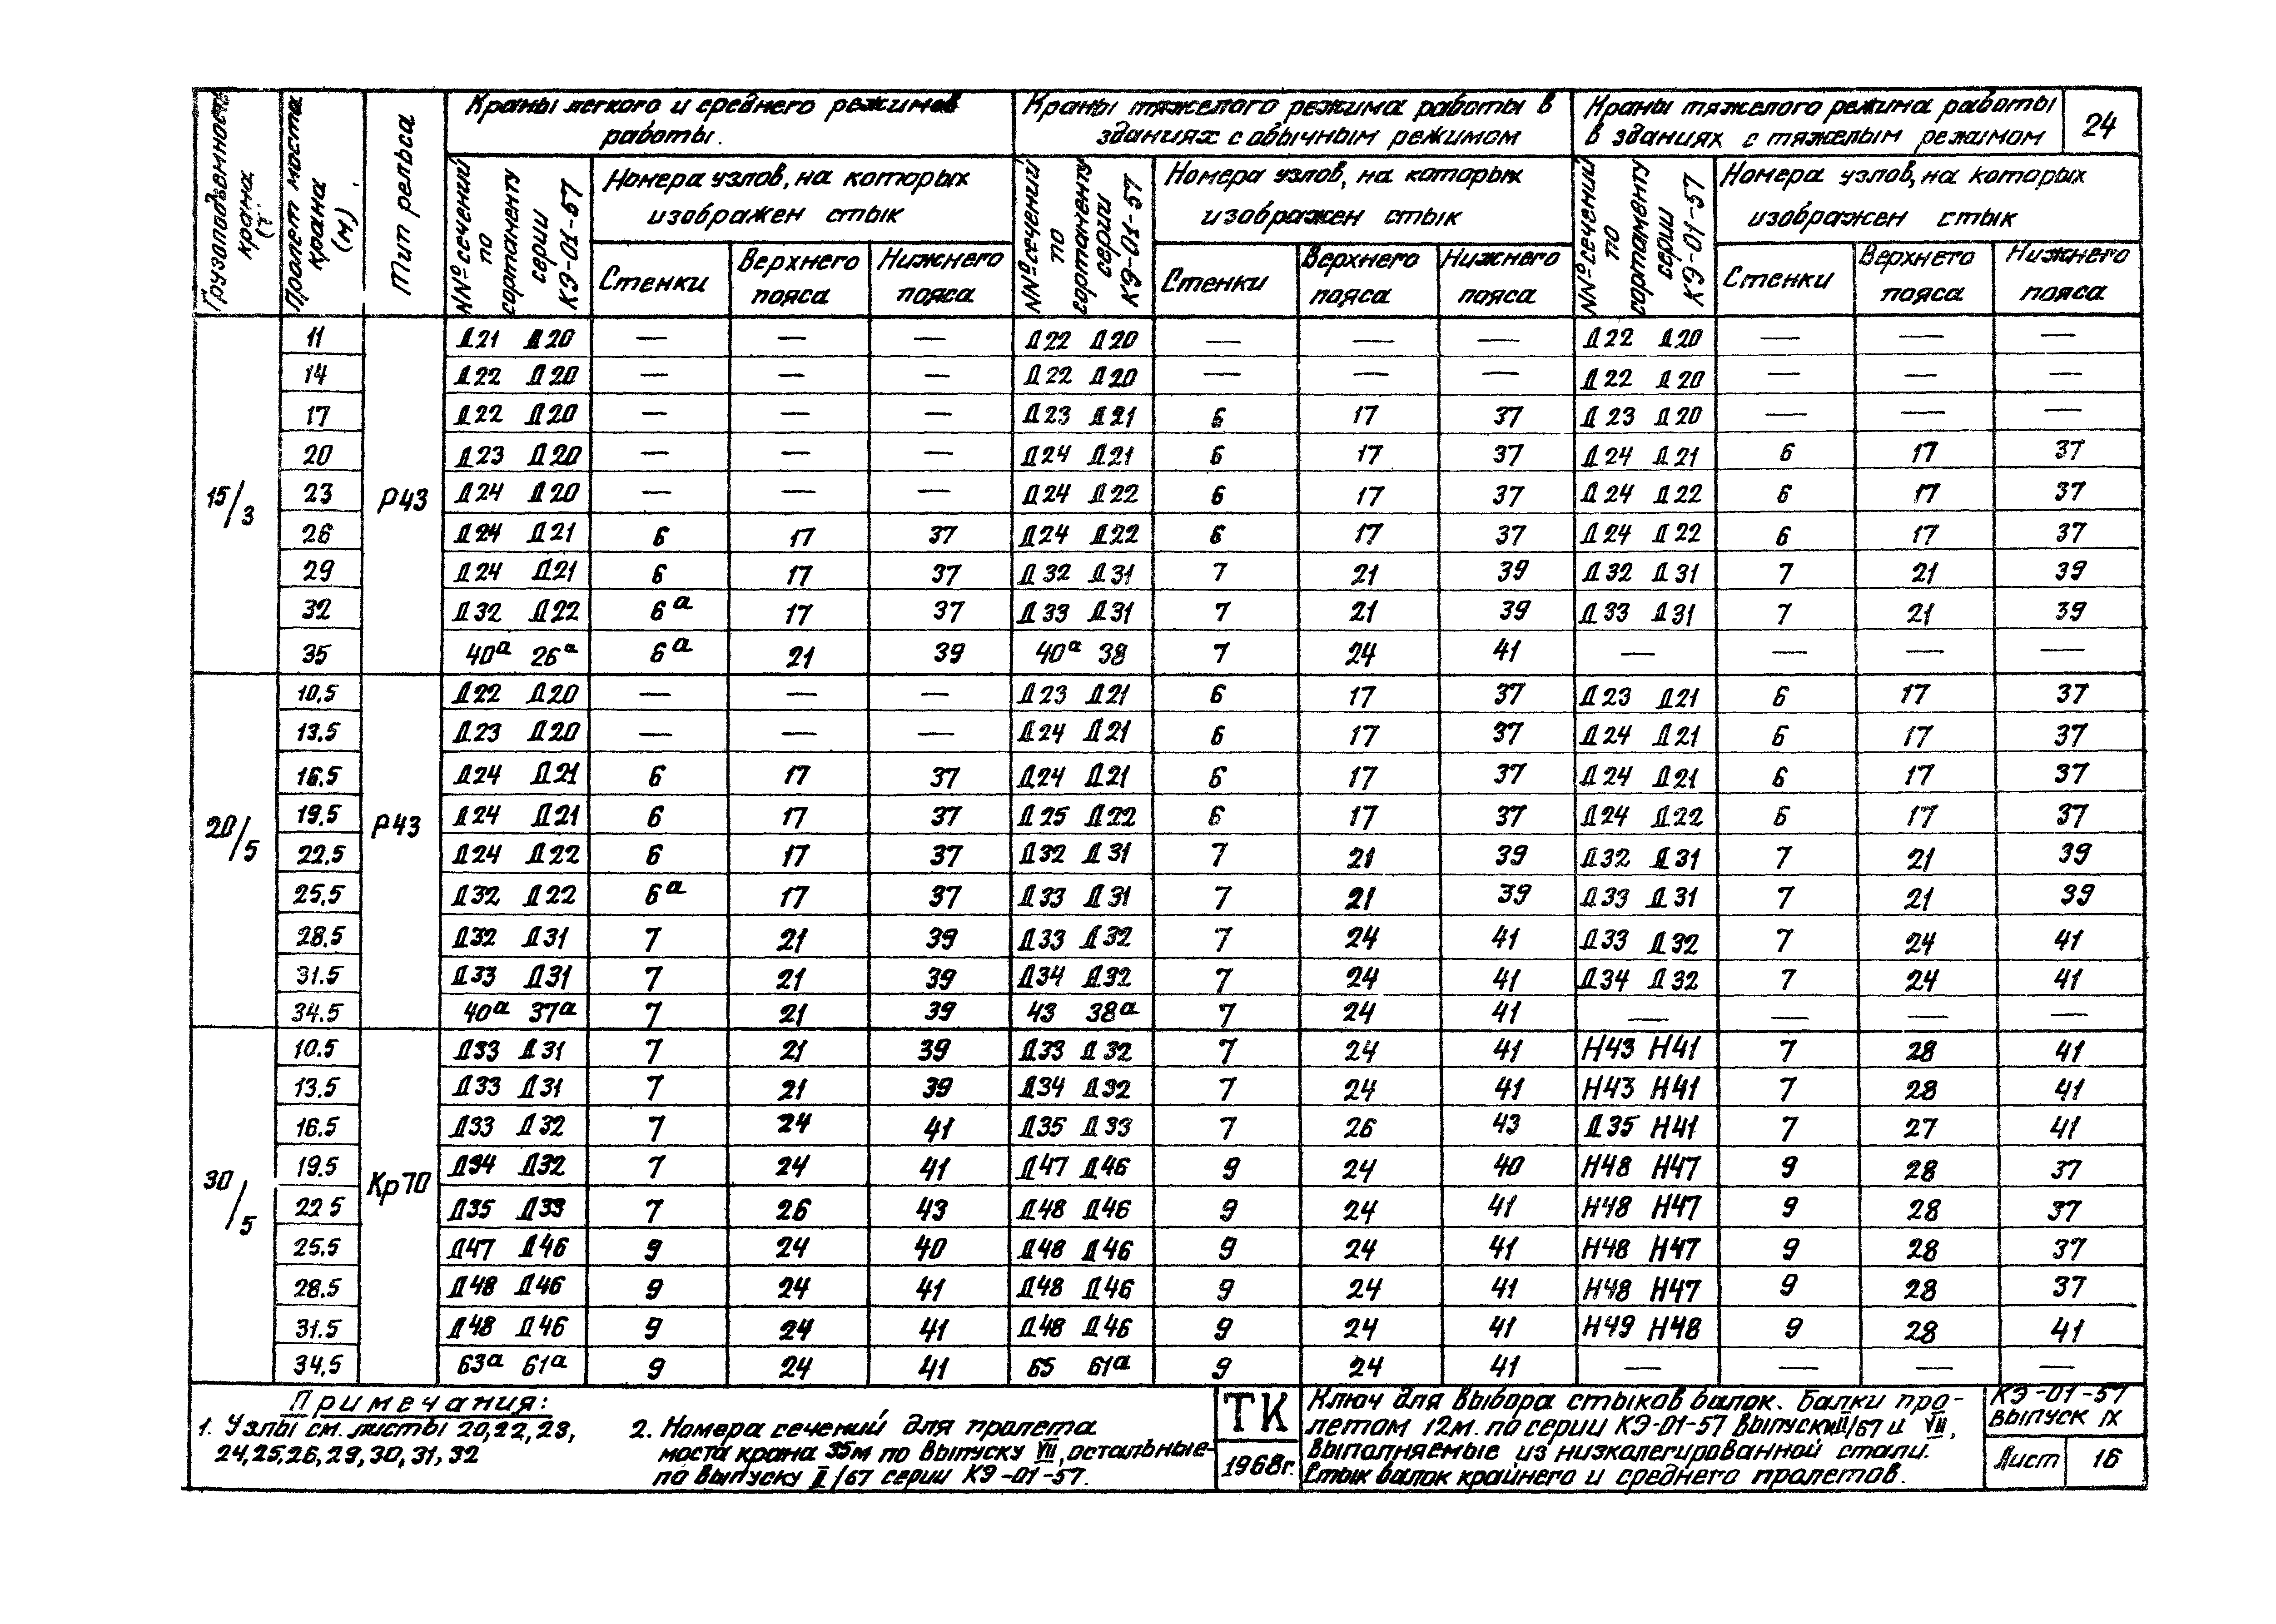 Краны легкого и среднего режимов работы.
Краны тяжелого режима работы в зданиях с обычным режимом
Краны тяжелого режима работы в зданиях с тяжелым режимом
24
Грузоподъемность крана (т)
Пролет моста крана (м)
Тип рельса
NNº сечений по сортаменту серии КЭ-01-57
Номера узлов, на которых изображен стык
Стенки
Верхнего пояса
Нижнего пояса
NNº сечений по сортаменту серии КЭ-01-57
Номера узлов, на которых изображен стык
Стенки
Верхнего пояса
Нижнего пояса
NNº сечений по сортаменту серии КЭ-01-57
Номера узлов, на которых изображен стык
Стенки
Верхнего пояса
Нижнего пояса
15/3 Р43
11 Д21 Д20 — — — Д22 Д20 — — — Д22 Д20 — — —
14 Д22 Д20 — — — Д22 Д20 — — — Д22 Д20 — — —
17 Д22 Д20 — — — Д23 Д21 6 17 37 Д23 Д20 — — —
20 Д23 Д20 — — — Д24 Д21 6 17 37 Д24 Д21 6 17 37
23 Д24 Д20 — — — Д24 Д22 6 17 37 Д24 Д22 6 17 37
26 Д24 Д21 6 17 37 Д24 Д22 6 17 37 Д24 Д22 6 17 37
29 Д24 Д21 6 17 37 Д32 Д31 7 21 39 Д32 Д31 7 21 39
32 Д32 Д22 6а 17 37 Д33 Д31 7 21 39 Д33 Д31 7 21 39
35 40а 26а 6а 21 39 40а 38 7 24 41 — — — —
20/5 Р43
10,5 Д22 Д20 — — — Д23 Д21 6 17 37 Д23 Д21 6 17 37
13.5 Д23 Д20 — — — Д24 Д21 6 17 37 Д24 Д21 6 17 37
16.5 Д24 Д21 6 17 37 Д24 Д21 6 17 37 Д24 Д21 6 17 37
19.5 Д24 Д21 6 17 37 Д25 Д22 6 17 37 Д24 Д22 6 17 37
22.5 Д24 Д22 6 17 37 Д32 Д31 7 21 39 Д32 Д31 7 21 39
25.5 Д32 Д22 6а 17 37 Д33 Д31 7 21 39 Д33 Д31 7 21 39
28.5 Д32 Д31 7 21 39 Д33 Д32 7 24 41 Д33 Д32 7 24 41
31.5 Д33 Д31 7 21 39 Д34 Д32 7 24 41 Д34 Д32 7 24 41
34.5 40а 37а 7 21 39 43 38а 7 24 41 — — — —
30/5 Кр70
10.5 Д33 Д31 7 21 39 Д33 Д32 7 24 41 Н43 Н41 7 28 41
13.5 Д33 Д31 7 21 39 Д34 Д32 7 24 41 Н43 Н41 7 28 41
16.5 Д33 Д32 7 24 41 Д35 Д33 7 26 43 Д35 Н41 7 27 41
19.5 Д34 Д32 7 24 41 Д47 Д46 9 24 40 Н48 Н47 9 28 37
22 5 Д35 Д33 7 26 43 Д48 Д46 9 24 41 Н48 Н47 9 28 37
25.5 Д47 Д46 9 24 40 Д48 Д46 9 24 41 Н48 Н47 9 28 37
28.5 Д48 Д46 9 24 41 Д48 Д46 9 24 41 Н48 Н47 9 28 37
31.5 Д48 Д46 9 24 41 Д48 Д46 9 24 41 Н49 Н48 9 28 41
34,5 63а 61а 9 24 41 65 61а 9 24 41 — — — —
Примечания:
1. Узлы см. листы 20,22,23,
24,25,26,29,30,31,32
2. Номера сечений для пролета
моста крана 35м по выпуску VII, остальные-
по выпуску II/67 серии КЭ-01-57.
ТК
1968г.
Ключ для выбора стыков балок. Балки про-
летом 12м. по серии КЭ-01-57 выпуски III/67 и VII,
выполняемые из низколегированной стали.
Стык балок крайнего и среднего пролетов.
КЭ-01-57
выпуск IX
Лист 16